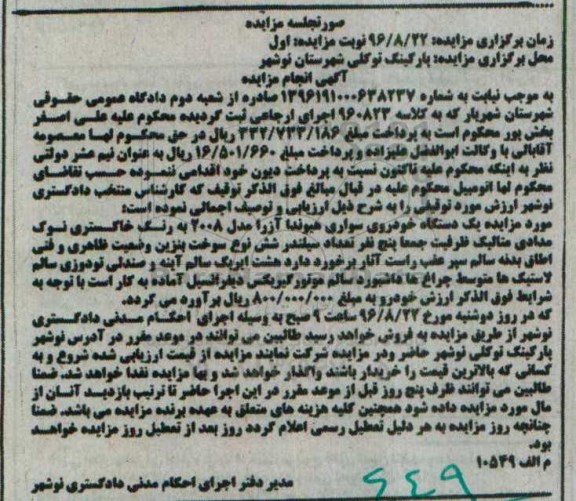 صورتجلسه مزایده
زمان برگزاری مزایده: ۹۶/۸/۲۲ نوبت مزایده: اول
محل برگزاری مزایده: پارکینگ توکلی شهرستان نوشهر
آگهی انجام مزایده
به موجب نیابت به شماره ۱۳۹۶۱۹۱۰۰۰۶۳۸۲۳۷ صادره از شعبه دوم دادگاه عمومی حقوقی
شهرستان شهریار که به کلاسه ۹۶۰۸۲۳ اجرای ارجاعی ثبت گردیده محکوم علیه علی اصغر
بخش پور محکوم است به پرداخت مبلغ ۳۳۲/۷۳۳/۱۸۶ ریال در حق محکوم لها معصومه
آقابالی با وکالت ابوالفضل علیزاده و پرداخت مبلغ ۱۶/۵۰۱/۶۶۰ ریال به عنوان نیم عشر دولتی
نظر به اینکه محکوم علیه تاکنون نسبت به پرداخت دیون خود اقدامی ننموده حسب تقاضای
محکوم لها اتومبیل محکوم علیه در قبال مبالغ فوق الذکر توقیف که کارشناس منتخب دادگستری
نوشهر ارزش مورد توقیفی را به شرح ذیل ارزیابی و توصیف اجمالی نموده است:
مورد مزایده یک دستگاه خودروی سواری هیوندا آزرا مدل ۲۰۰۸ به رنگ خاکستری نوک
مدادی متالیک ظرفیت جمعا پنج نفر تعداد سیلندر شش نوع سوخت بنزین وضعیت ظاهری و فنی
اطاق بدنه سالم سپر عقب راست آثار برخورد دارد هشت ایربک سالم آینه و صندلی تودوزی سالم
لاستیک ها متوسط چراغ ها داشبورد سالم موتور گیربکس دیفرانسیل آماده به کار است با توجه به
شرایط فوق الذکر ارزش خودرو به مبلغ ۸۰۰/۰۰۰/۰۰۰ ریال برآورد می گردد.
که در روز دوشنبه مورخ ۹۶/۸/۲۲ ساعت ۹ صبح به وسیله اجرای احکام مدنی دادگستری
نوشهر از طریق مزایده به فروش خواهد رسید طالبین می توانند در موعد مقرر در آدرس نوشهر
پارکینگ توکلی نوشهر حاضر ودر مزایده شرکت نمایند مزایده از قیمت ارزیابی شده شروع و به
کسانی که بالاترین قیمت را خریدار باشند واگذار خواهد شد و بها مزایده نقدا خواهد شد. ضمنا
طالبین می توانند ظرف پنج روز قبل از موعد مقرر در این اجرا حاضر تا ترتیب بازدید آنان از
مال مورد مزایده داده شود همچنین کلیه هزینه های متعلق به عهده برنده مزایده می باشد. ضمنا
چنانچه روز مزایده به هر دلیل تعطیل رسمی اعلام گردد روز بعد از تعطیل روز مزایده خواهد
بود.
م الف ۱۰۵۴۹
مدیر دفتر اجرای احکام مدنی دادگستری نوشهر
۶۴۹